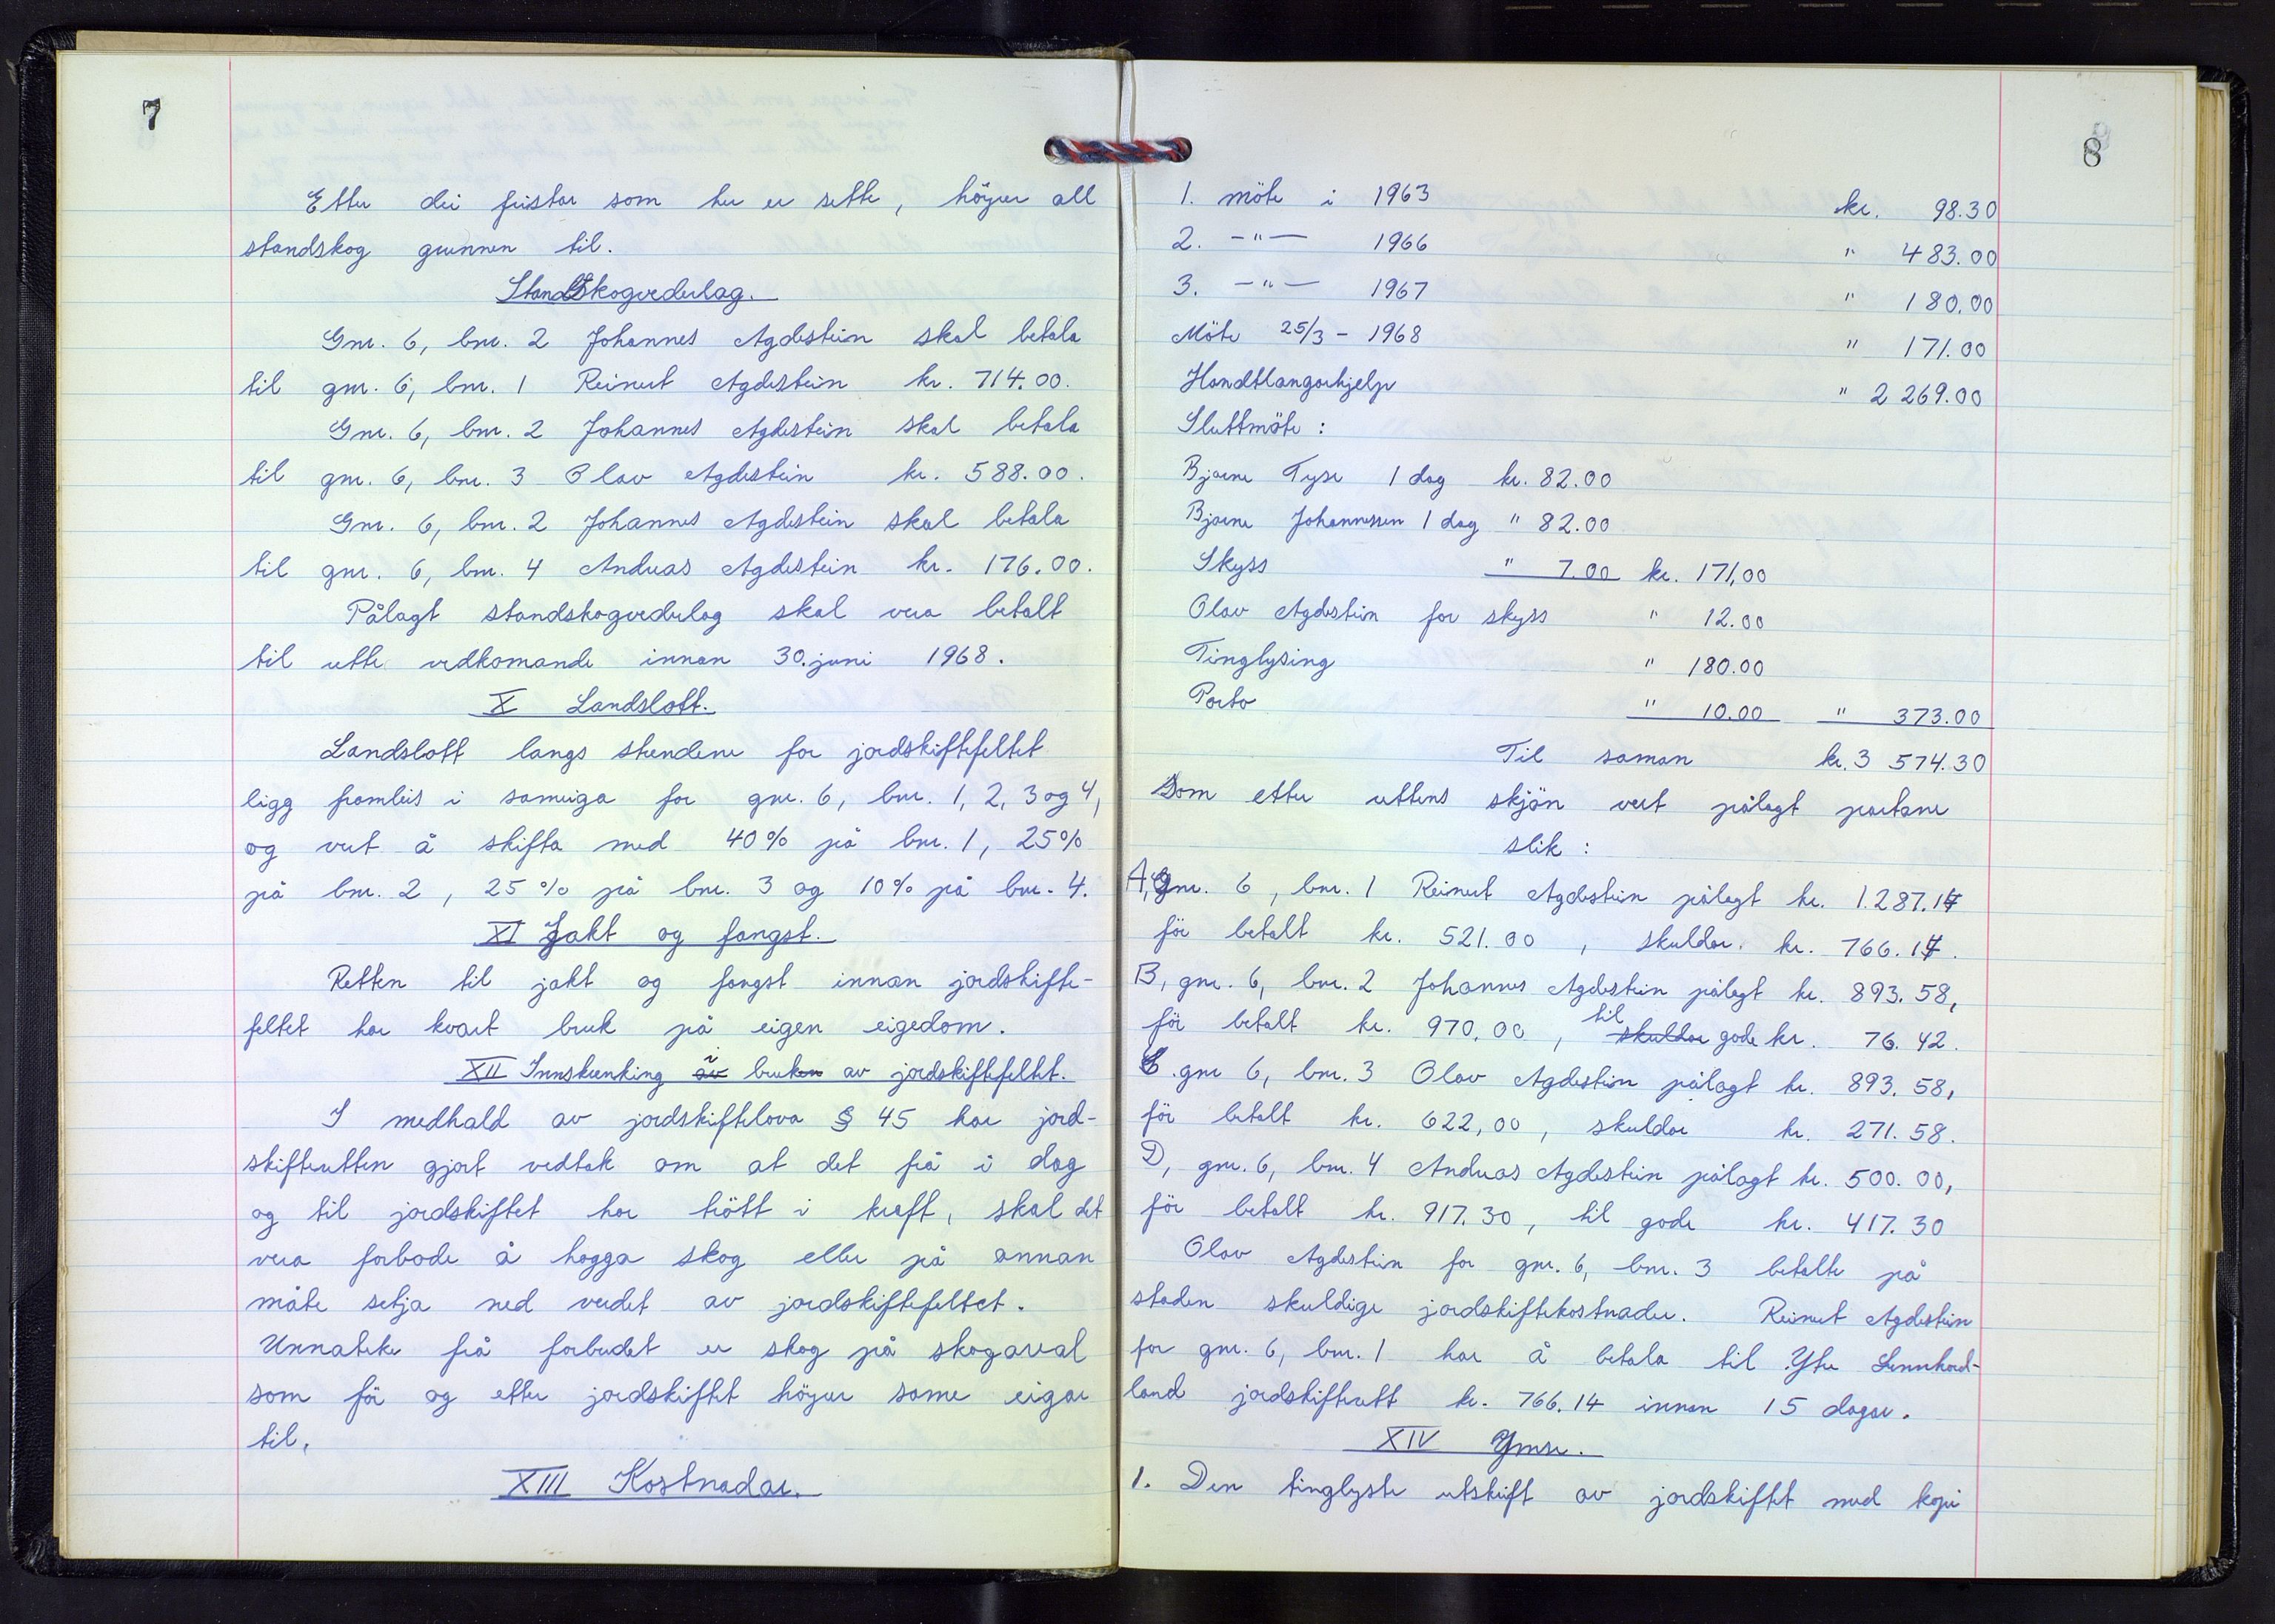 7
Etter dei fristar som her er sette, höyrer all
standskog grunnen til.
Standskogvederlag.
Gnr. 6, bnr. 2 Johannes Agdestein skal betala
til gnr. 6, bnr. 1 Reinert Agdestein kr. 714.00.
Gnr. 6, bnr. 2 Johannes Agdestein skal betala
til gnr. 6, bnr. 3 Olav Agdestein kr. 588.00.
Gnr. 6, bnr. 2 Johannes Agdestein skal betala
til gnr. 6, bnr. 4 Andreas Agdestein kr. 176.00.
Pålagt standskogvederlag skal vera betalt
til rette vedkomande innan 30. juni 1968.
X Landslott.
Landslott langs strendene for jordskiftefeltet
ligg framleis i sameiga for gnr. 6, bnr. 1, 2, 3 og 4,
og vert å skifta med 40% på bnr. 1, 25%
på bnr. 2, 25% på bnr. 3 og 10% på bnr. 4.
XI Jakt og fangst.
Retten til jakt og fangst innan jordskifte-
feltet har kvart bruk på eigen eigedom.
XII Innskrenking av i bruken av jordskiftefeltet.
I medhald av jordskiftelova § 45 har jord-
skifteretten gjort vedtak om at det frå i dag
og til jordskiftet har trött i kraft, skal det
vera forbode å hogga skog eller på annan
måte setja ned verdet av jordskiftefeltet.
Unnateke frå forbudet er skog på skogareal
som för og etter jordskiftet höyrer same eigar
til.
XIII Kostnadar.
8
1. möte i 1963 kr. 98.30
2. -"- 1966 " 483.00
3. -"- 1967 " 180.00
Möte 25/3 - 1968 " 171.00
Handtlangarhjelp " 2 269.00
Sluttmöte :
Bjarne Tyse 1 dag kr. 82.00
Bjarne Johannessen 1 dag " 82.00
Skyss " 7.00 kr. 171,00
Olav Agdestein for skyss " 12.00
Tinglysing " 180.00
Porto " 10.00 " 373.00
Til saman kr. 3 574.30
Som etter rettens skjön vert pålagt partane
slik :
A, gnr. 6, bnr. 1 Reinert Agdestein pålagt kr. 1.287.14
för betalt kr. 521.00, skuldar kr. 766.14.
B, gnr. 6, bnr. 2 Johannes Agdestein pålagt kr. 893.58,
för betalt kr. 970.00, skuldar til gode kr. 76.42.
C. gnr 6, bnr. 3 Olav Agdestein pålagt kr. 893.58,
för betalt kr. 622,00, skuldar kr. 271.58.
D, gnr. 6, bnr. 4 Andreas Agdestein pålagt kr. 500.00,
för betalt kr. 917.30, til gode kr. 417.30
Olav Agdestein for gnr. 6, bnr. 3 betalte på
staden skuldige jordskiftekostnader. Reinert Agdestein
for gnr. 6, bnr. 1 har å betala til Ytre Sunnhord-
land jordskifterett kr. 766.14 innan 15 dagar.
XIV Ymse.
1. Den tinglyste utskrift av jordskiftet med kopi